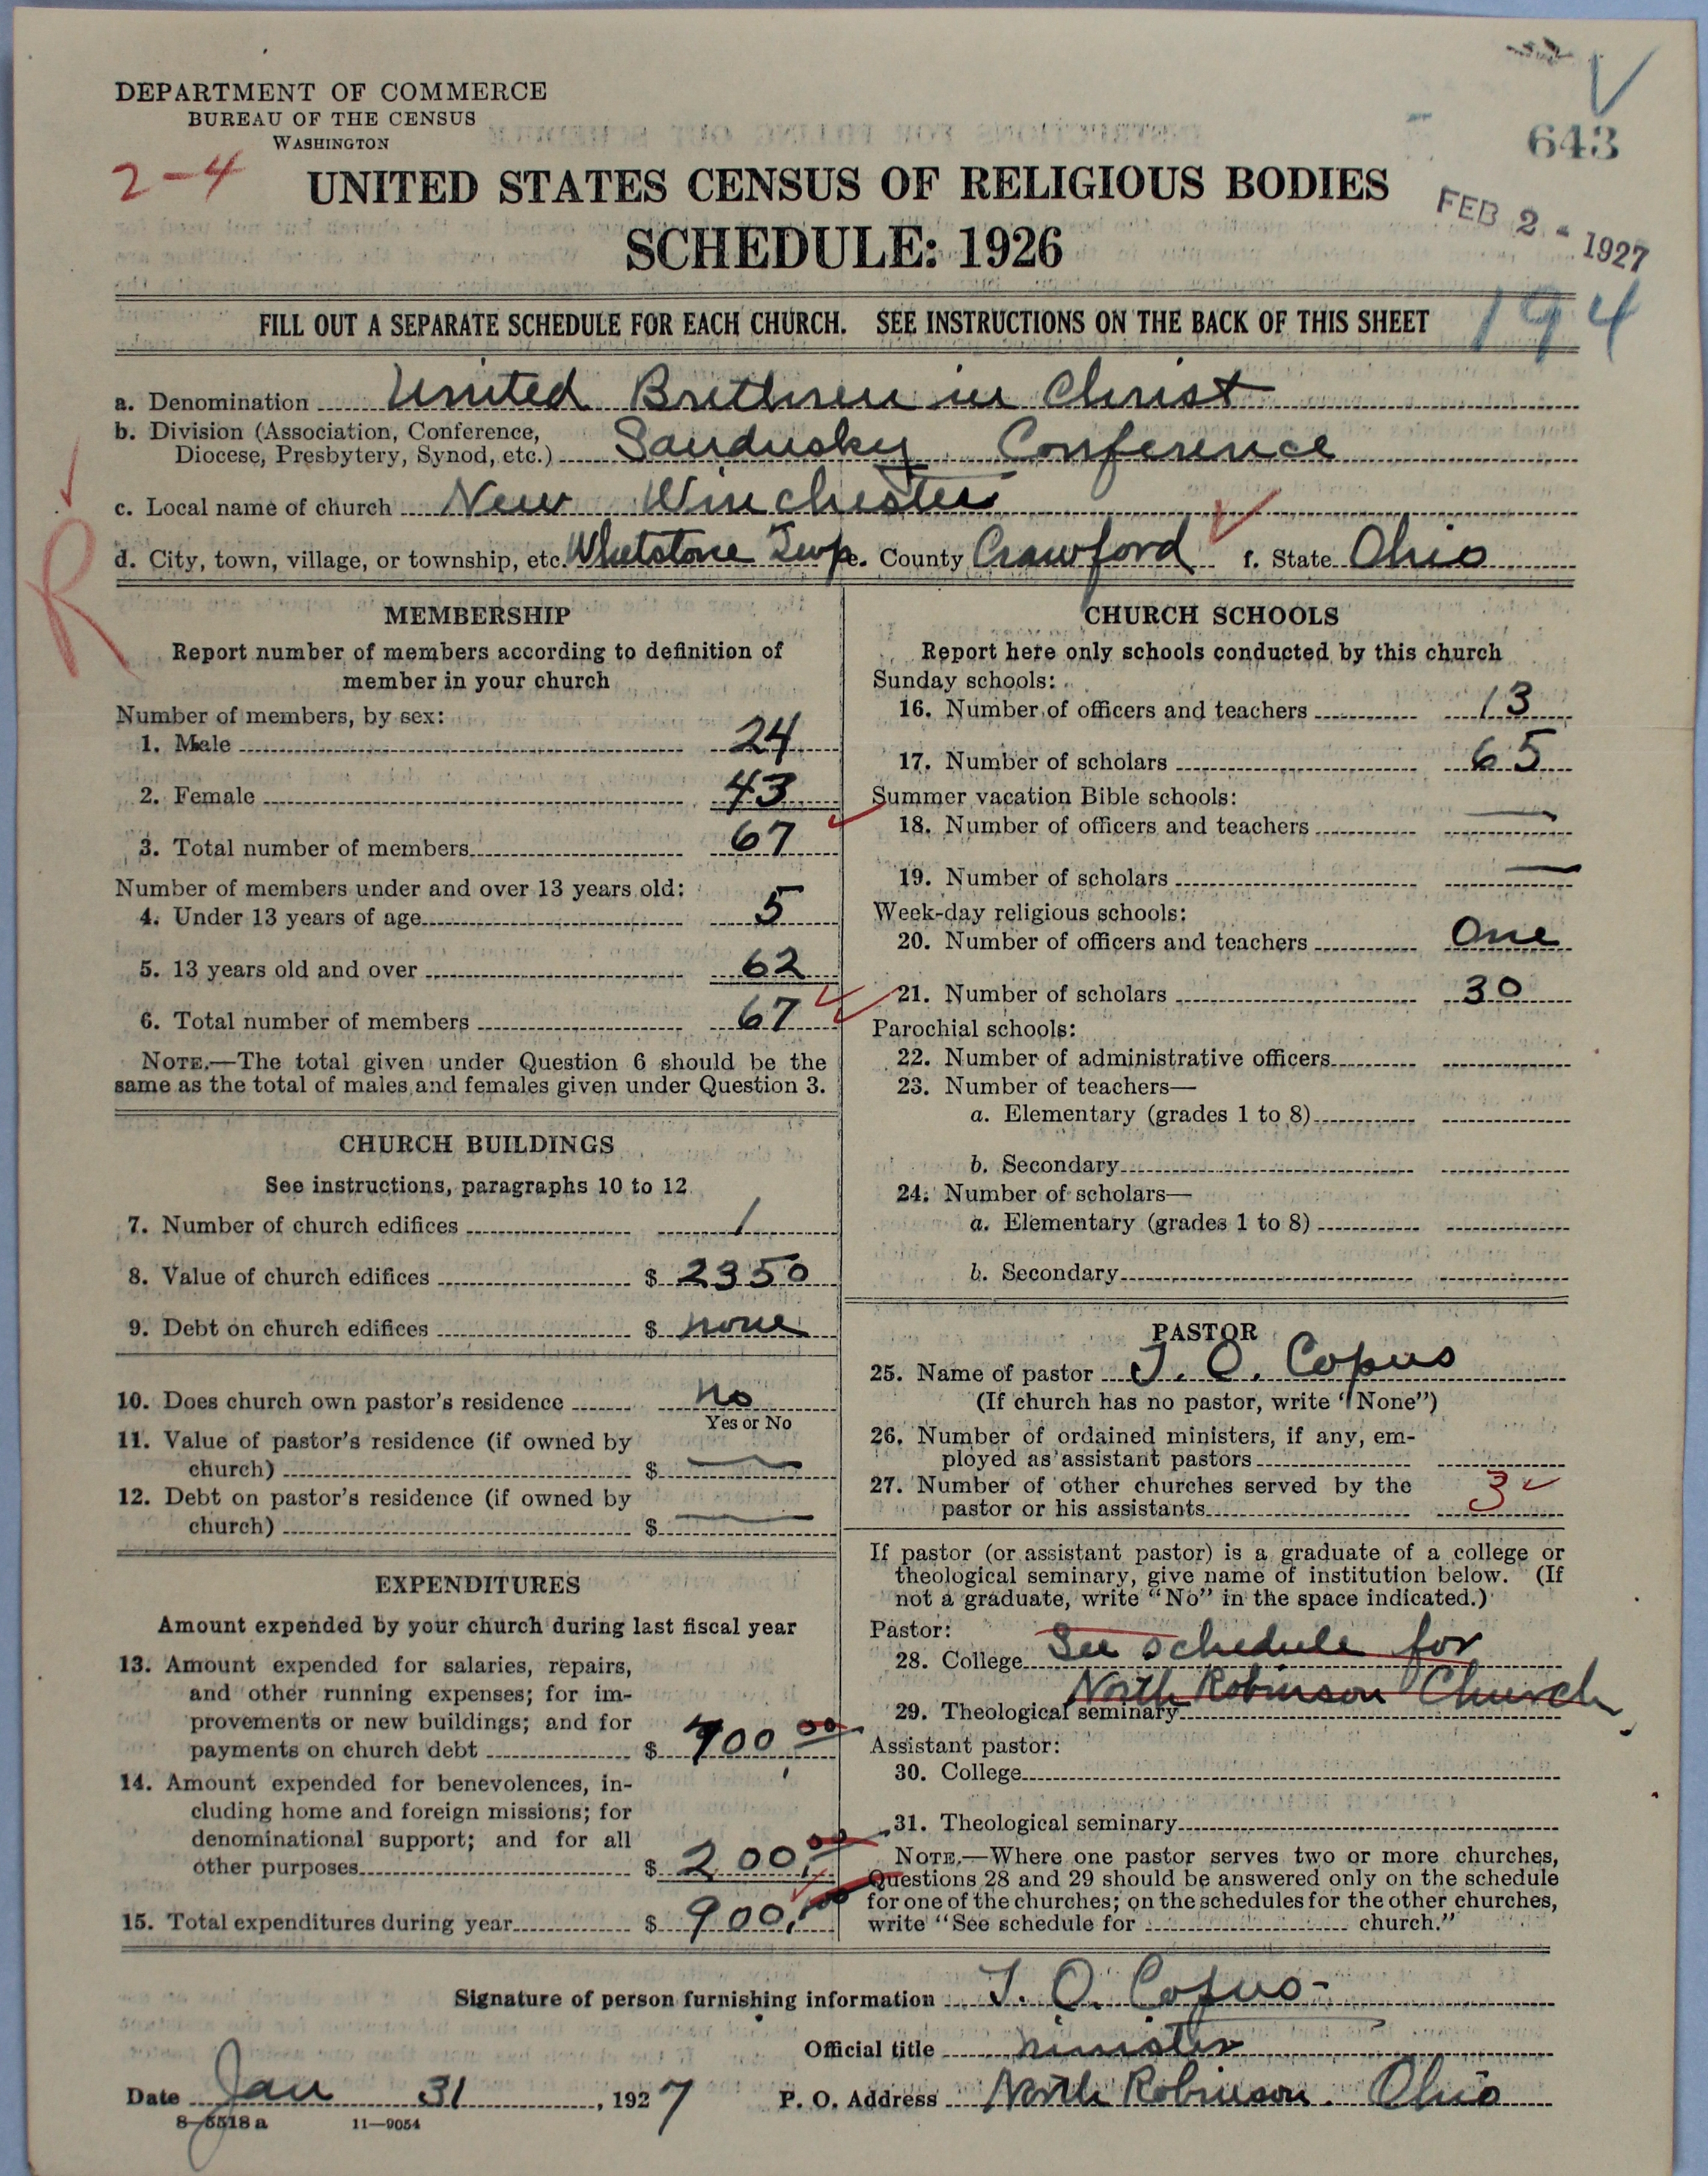 DEPARTMENT OF COMMERCE
BUREAU OF THE CENSUS
WASHINGTON
643
2-4
UNITED STATES CENSUS OF RELIGIOUS BODIES
FEB 2 - 1927
SCHEDULE: 1926
194
FILL OUT A SEPARATE SCHEDULE FOR EACH CHURCH. SEE INSTRUCTIONS ON THE BACK OF THIS SHEET
a. Denomination United Brethren in Christ
b. Division (Association, Conference,
Diocese, Presbytery, Synod, etc.) Sandusky Conference
c. Local name of church New Winchester
R
d. City, town, village, or township, etc. Whetstone Twp e. County Crawford f. State Ohio
MEMBERSHIP
Report number of members according to definition of
member in your church
Number of members, by sex:
1. Male 24
2. Female 43
3. Total number of members 67
Number of members under and over 13 years old:
4. Under 13 years of age 5
5. 13 years old and over 62
6. Total number of members 67
NOTE.—The total given under Question 6 should be the
same as the total of males and females given under Question 3.
CHURCH BUILDINGS
See instructions, paragraphs 10 to 12
7. Number of church edifices 1
8. Value of church edifices $ 2350
9. Debt on church edifices $ none
10. Does church own pastor's residence no
Yes or No
11. Value of pastor's residence (if owned by
church) $ —
12. Debt on pastor's residence (if owned by
church) $ —
EXPENDITURES
Amount expended by your church during last fiscal year
13. Amount expended for salaries, repairs,
and other running expenses; for im-
provements or new buildings; and for
payments on church debt $ 700.00
14. Amount expended for benevolences, in-
cluding home and foreign missions; for
denominational support; and for all
other purposes $ 200.00
15. Total expenditures during year $ 900.00
CHURCH SCHOOLS
Report here only schools conducted by this church
Sunday schools:
16. Number of officers and teachers 13
17. Number of scholars 65
Summer vacation Bible schools:
18. Number of officers and teachers —
19. Number of scholars —
Week-day religious schools:
20. Number of officers and teachers One
21. Number of scholars 30
Parochial schools:
22. Number of administrative officers
23. Number of teachers—
a. Elementary (grades 1 to 8)
b. Secondary
24. Number of scholars—
a. Elementary (grades 1 to 8)
b. Secondary
PASTOR
25. Name of pastor J. O. Copus
(If church has no pastor, write "None")
26. Number of ordained ministers, if any, em-
ployed as assistant pastors
27. Number of other churches served by the
pastor or his assistants 3
If pastor (or assistant pastor) is a graduate of a college or
theological seminary, give name of institution below. (If
not a graduate, write "No" in the space indicated.)
Pastor:
28. College See schedule for
29. Theological seminary North Robinson Church
Assistant pastor:
30. College
31. Theological seminary
NOTE.—Where one pastor serves two or more churches,
Questions 28 and 29 should be answered only on the schedule
for one of the churches; on the schedules for the other churches,
write "See schedule for church."
Signature of person furnishing information J. O. Copus
Official title minister
Date Jan 31, 1927 P. O. Address North Robinson. Ohio
8-5518 a 11-9054